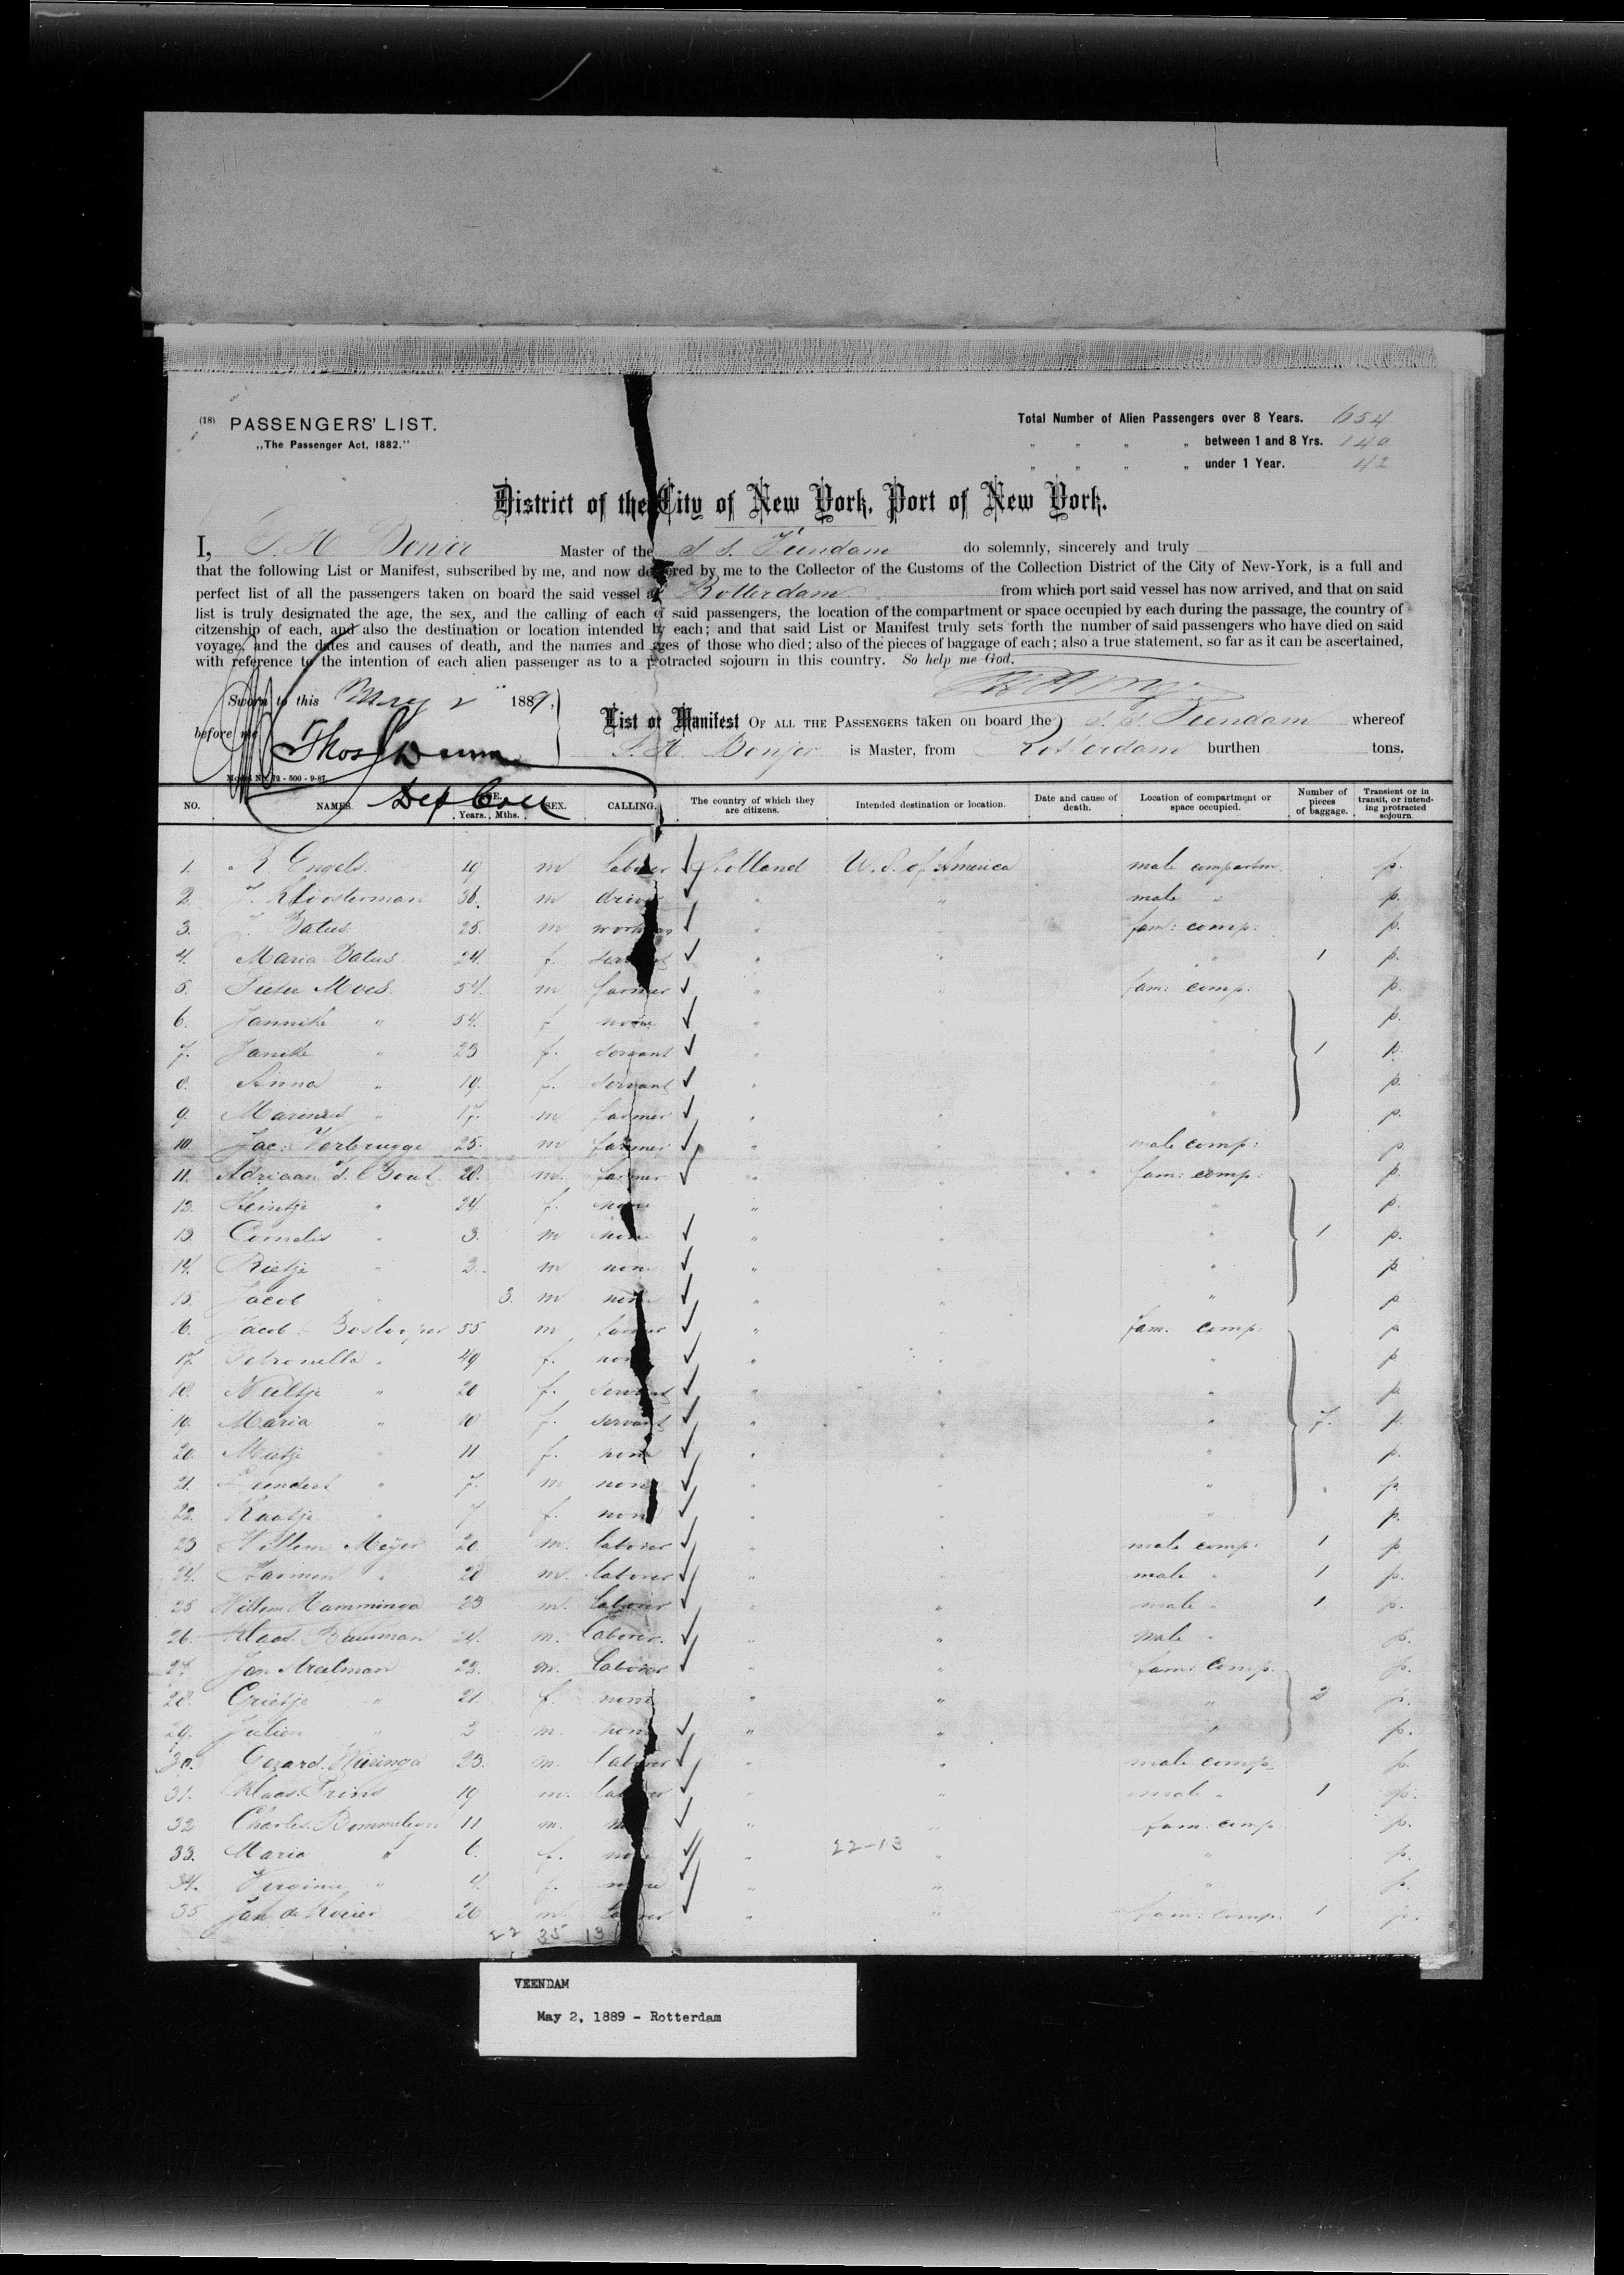 (18) PASSENGERS' LIST.
„The Passenger Act, 1882."
Total Number of Alien Passengers over 8 Years. 654
„ „ „ „ between 1 and 8 Yrs. 140
„ „ „ „ under 1 Year. 42
District of the City of New York, Port of New York.
I, Bonjer Master of the S. S. Veendam do solemnly, sincerely and truly
that the following List or Manifest, subscribed by me, and now delivered by me to the Collector of the Customs of the Collection District of the City of New-York, is a full and
perfect list of all the passengers taken on board the said vessel at Rotterdam from which port said vessel has now arrived, and that on said
list is truly designated the age, the sex, and the calling of each of said passengers, the location of the compartment or space occupied by each during the passage, the country of
citzenship of each, and also the destination or location intended by each; and that said List or Manifest truly sets forth the number of said passengers who have died on said
voyage, and the dates and causes of death, and the names and ages of those who died; also of the pieces of baggage of each; also a true statement, so far as it can be ascertained,
with reference to the intention of each alien passenger as to a protracted sojourn in this country. So help me God.
Sworn to this May 2 1889,
before me Thos Dunn
Dep Coll
List or Manifest OF ALL THE PASSENGERS taken on board the S. S. Veendam whereof
Bonjer is Master, from Rotterdam burthen tons.
NO. NAMES. AGE. Years. Mths. SEX. CALLING. The country of which they are citizens. Intended destination or location. Date and cause of death. Location of compartment or space occupied. Number of pieces of baggage. Transient or in transit, or intending protracted sojourn.
1. Engels. 19 m laborer Holland U. S. of America male compartm. p.
2. Kloosterman 36. m driver „ „ male „ p.
3. Batus 25. m workman „ „ fam: comp: p.
4. Maria Batus 24. f. servant „ „ „ 1 p.
5. Pieter Moes. 54. m farmer „ „ fam: comp: p.
6. Jannike „ 54. f none „ „ „ p.
7. Janike „ 23 f. servant „ „ „ 1 p.
8. Anna „ 19. f. servant „ „ „ p.
9. Marinus „ 17. m farmer „ „ „ p.
10. Jac: Verbrugge 25. m farmer „ „ male comp: p.
11. Adriaan 28. m. farmer „ „ fam: comp: p.
12. Heintje „ 24. f. none „ „ „ p.
13. Cornelis „ 3. m none „ „ „ 1 p.
14. Pietje „ 2. m none „ „ „ p.
15. Jacob „ 3. m none „ „ „ p
16. Jacob 55 m farmer „ „ fam. comp: p
17. Petronella „ 49 f. none „ „ „ p
18. Neeltje „ 20 f. servant „ „ „ p
19. Maria „ 18 f. servant „ „ „ 7. p.
20. Mietje „ 11 f. none „ „ „ p.
21. Leendert „ 7. m none „ „ „ p.
22. Kaatje „ 7 f. none „ „ „ p.
23 Willem Meijer 20 m. laborer „ „ male comp: 1 p
24. Harmen „ 28 m. laborer „ „ male „ 1 p.
25 Willem Hamminga 23 m. laborer „ „ male „ 1 p.
26. Klaas Bouman 24. m. laborer. „ „ male „ p.
27. Jan 23. m. laborer „ „ fam: comp. p.
28. Grietje „ 21. f. none „ „ „ 2 p.
29. Julien „ 2 m. none „ „ „ p.
30. Gerard. Wieringa 23. m. laborer „ „ male comp. p.
31. Klaas. Prins 19 m. laborer „ „ male „ 1 p.
32 Charles. 11 m. none „ „ fam. comp p.
33. Maria „ 6. f. none „ 22-13 „ „ p.
34. Virginie „ 4. f. none „ „ „ p.
35 Jan de 26 m. laborer „ „ fam. comp. 1 p.
22 35 13
VEENDAM
May 2, 1889 - Rotterdam